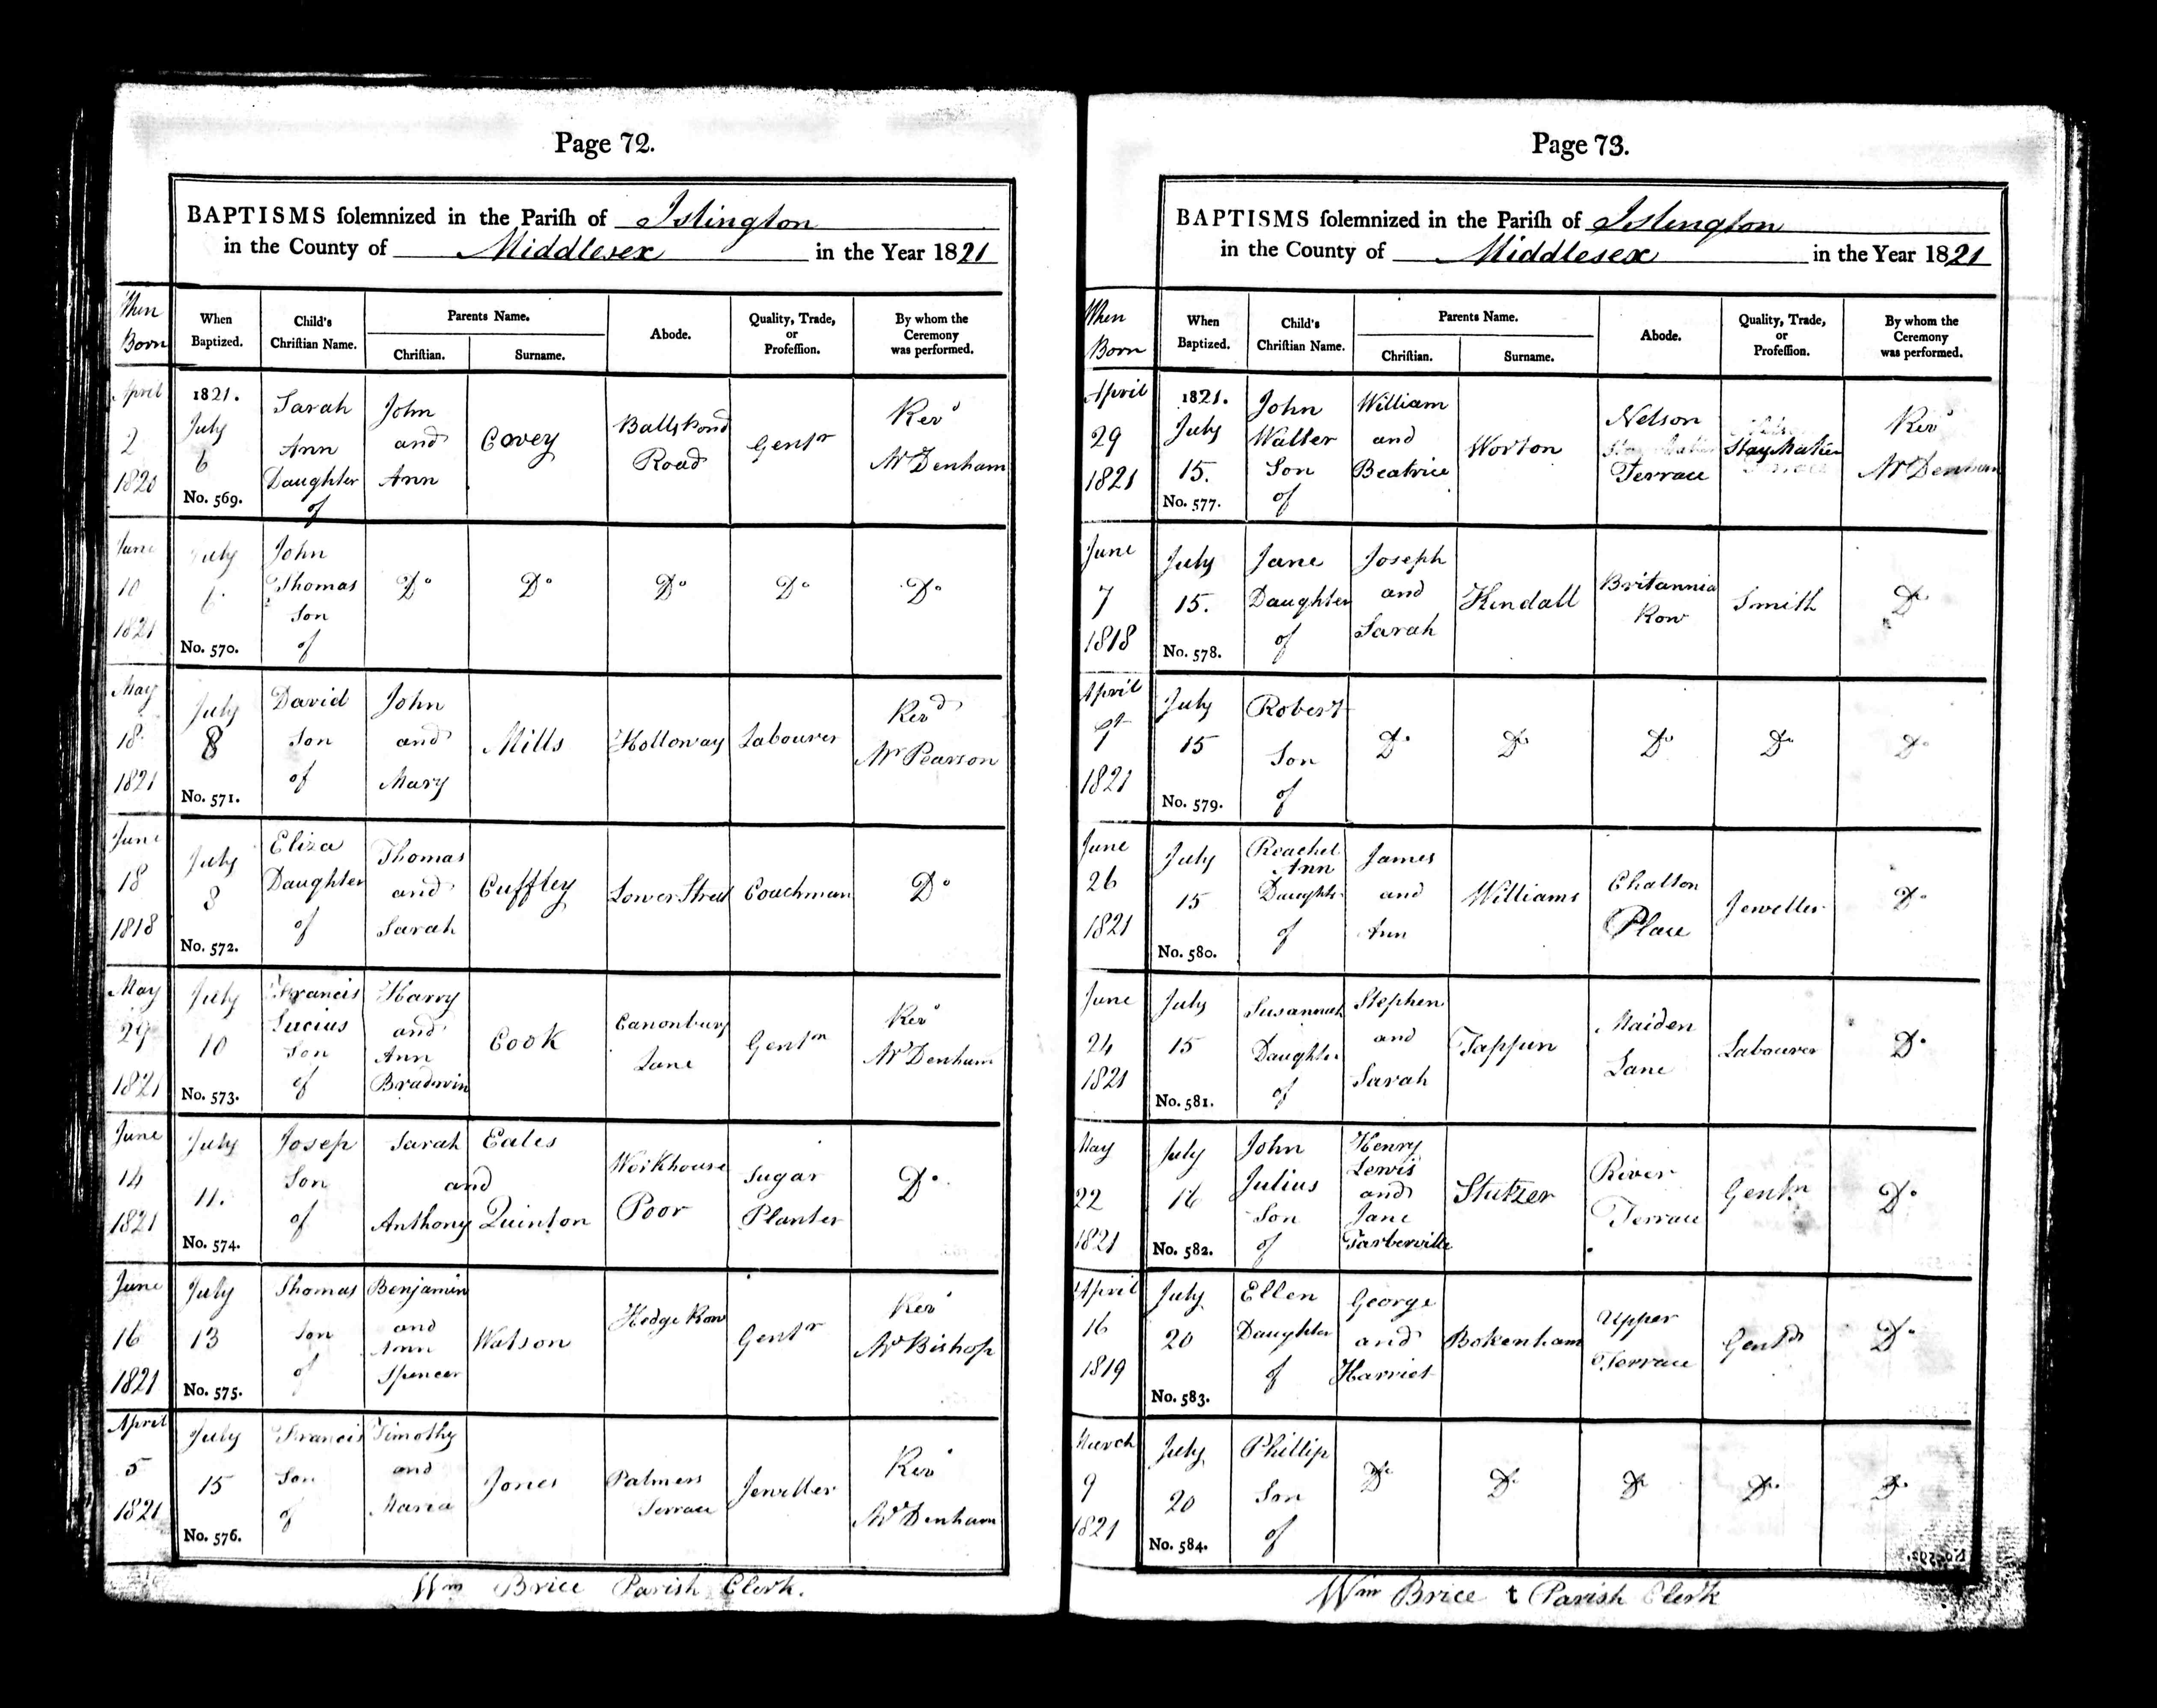 Page 72.
BAPTISMS ſolemnized in the Pariſh of Islington
in the County of Middlesex in the Year 1821
When Born
When Baptized.
Child's Chriſtian Name.
Parents Name.
Chriſtian.
Surname.
Abode.
Quality, Trade, or Profeſſion.
By whom the Ceremony was performed.
April 2 1820
1821. July 6 No. 569.
Sarah Ann Daughter of
John and Ann
Covey
Balls Pond Road
Gentn
Revd Mr Denham
June 10 1821
July 6. No. 570.
John Thomas Son of
Do
Do
Do
Do
Do
May 18. 1821
July 8 No. 571.
David Son of
John and Mary
Mills
Holloway
Labourer
Revd Mr Pearson
June 18 1818
July 8 No. 572.
Eliza Daughter of
Thomas and Sarah
Cuffley
Lower Street
Coachman
Do
May 29 1821
July 10 No. 573.
Francis Lucius Son of
Harry and Ann Bradwin
Cook
Canonbury Lane
Gentn
Revd Mr Denham
June 14 1821
July 11. No. 574.
Josep Son of
Sarah Eales
and
Anthony Quinton
Workhouse Poor
Sugar Planter
Do
June 16 1821
July 13 No. 575.
Thomas Son of
Benjamin and Ann Spencer
Watson
Hedge Row
Gentn
Revd Mr Bishop
April 5 1821
July 15 No. 576.
Francis Son of
Timothy and Maria
Jones
Palmers Terrace
Jeweller
Revd Mr Denham
Wm Brice Parish Clerk.
Page 73.
BAPTISMS ſolemnized in the Pariſh of Islington
in the County of Middlesex in the Year 1821
When Born
When Baptized.
Child's Chriſtian Name.
Parents Name.
Chriſtian.
Surname.
Abode.
Quality, Trade, or Profeſſion.
By whom the Ceremony was performed.
April 29 1821
1821. July 15. No. 577.
John Walter Son of
William and Beatrice
Worton
Nelson Terrace
Stay Maker
Revd Mr Denham
June 7 1818
July 15. No. 578.
Jane Daughter of
Joseph and Sarah
Kendall
Britannia Row
Smith
Do
April 1821
July 15 No. 579.
Robert Son of
Do
Do
Do
Do
Do
June 26 1821
July 15 No. 580.
Reachel Ann Daughter of
James and Ann
Williams
Chalton Place
Jeweller
Do
June 24 1821
July 15 No. 581.
Susannah Daughter of
Stephen and Sarah
Tappun
Maiden Lane
Labourer
Do
May 22 1821
July 16 No. 582.
John Julius Son of
Henry Lewis and Jane Tarberville
Stutzer
River Terrace
Gentn
Do
April 16 1819
July 20 No. 583.
Ellen Daughter of
George and Harriet
Bokenham
Upper Terrace
Gentn
Do
March 9 1821
July 20 No. 584.
Phillip Son of
Do
Do
Do
Do
Do
Wm Brice t Parish Clerk